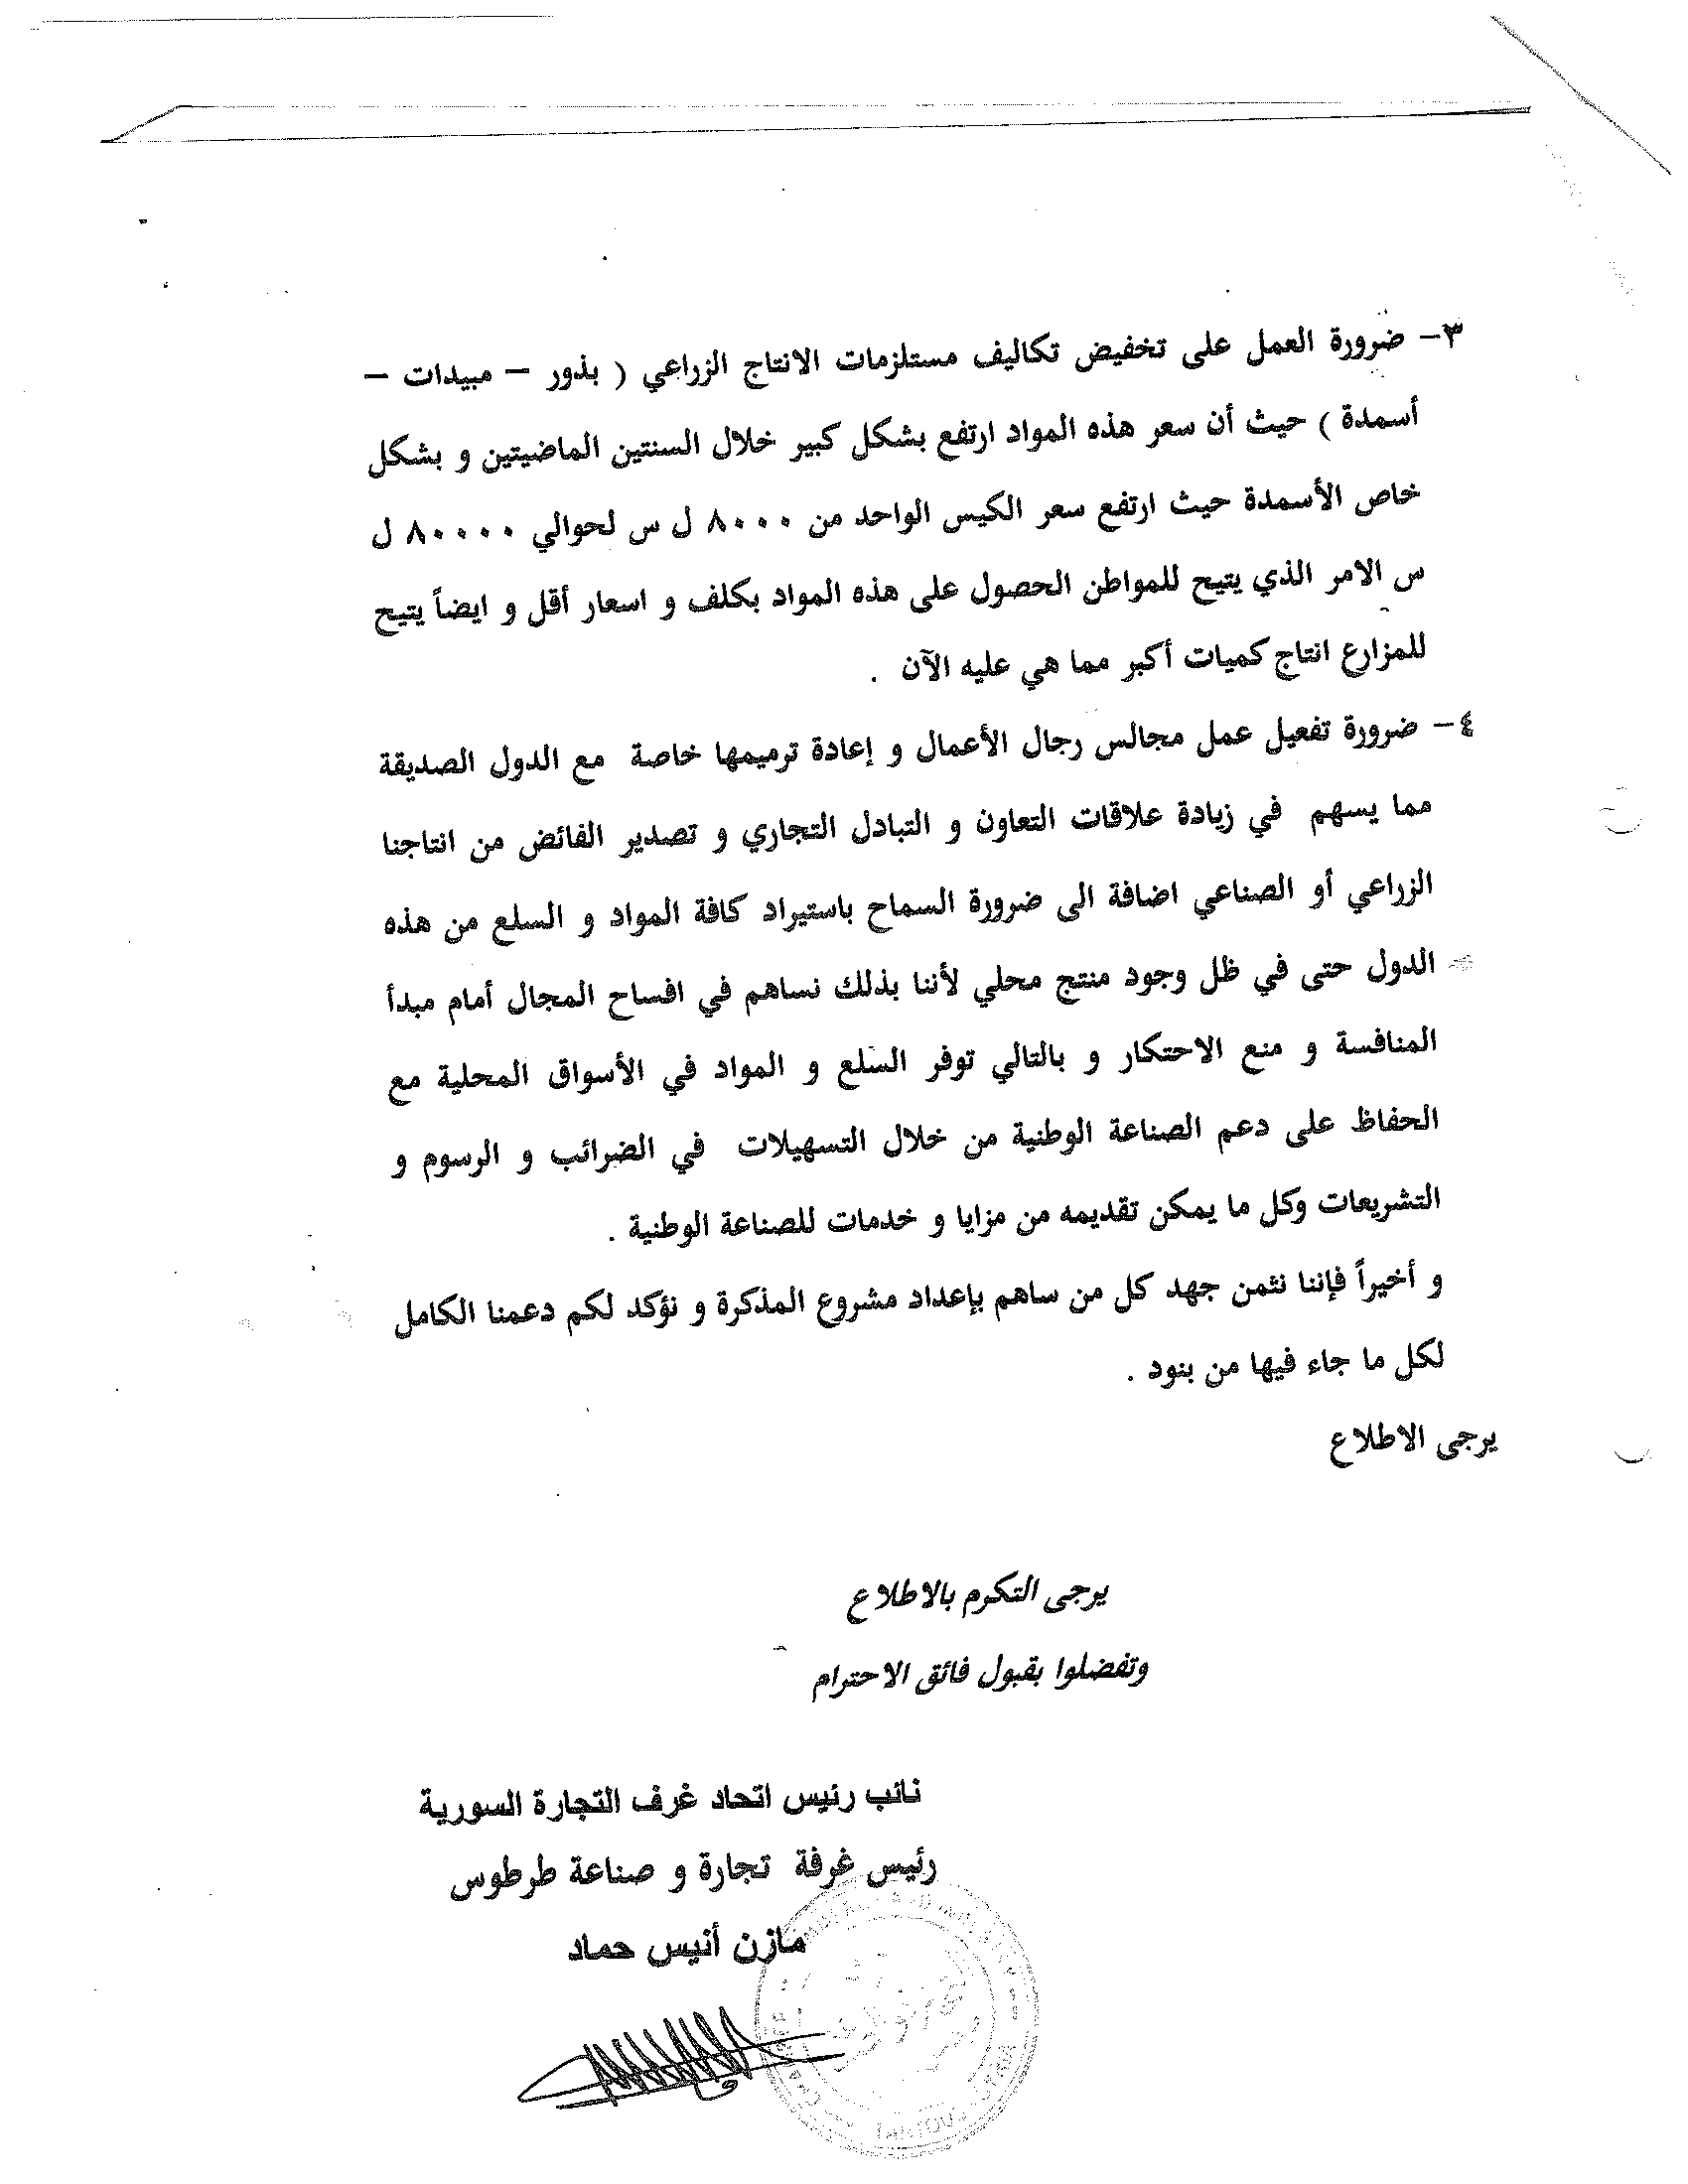 ٣- ضرورة العمل على تخفيض تكاليف مستلزمات الانتاج الزراعي ( بذور – مبيدات –
أسمدة ) حيث أن سعر هذه المواد ارتفع بشكل كبير خلال السنتين الماضيتين و بشكل
خاص الأسمدة حيث ارتفع سعر الكيس الواحد من ٨٠٠٠ ل س لحوالي ٨٠٠٠٠ ل
س الامر الذي يتيح للمواطن الحصول على هذه المواد بكلف و اسعار أقل و ايضاً يتيح
للمزارع انتاج كميات أكبر مما هي عليه الآن .
٤- ضرورة تفعيل عمل مجالس رجال الأعمال و إعادة ترميمها خاصة مع الدول الصديقة
مما يسهم في زيادة علاقات التعاون و التبادل التجاري و تصدير الفائض من انتاجنا
الزراعي أو الصناعي اضافة الى ضرورة السماح باستيراد كافة المواد و السلع من هذه
الدول حتى في ظل وجود منتج محلي لأننا بذلك نساهم في افساح المجال أمام مبدأ
المنافسة و منع الاحتكار و بالتالي توفر السلع و المواد في الأسواق المحلية مع
الحفاظ على دعم الصناعة الوطنية من خلال التسهيلات في الضرائب و الرسوم و
التشريعات وكل ما يمكن تقديمه من مزايا و خدمات للصناعة الوطنية .
و أخيراً فإننا نثمن جهد كل من ساهم بإعداد مشروع المذكرة و نؤكد لكم دعمنا الكامل
لكل ما جاء فيها من بنود .
يرجى الاطلاع
يرجى التكرم بالاطلاع
وتفضلوا بقبول فائق الاحترام
نائب رئيس اتحاد غرف التجارة السورية
رئيس غرفة تجارة و صناعة طرطوس
مازن أنيس حماد